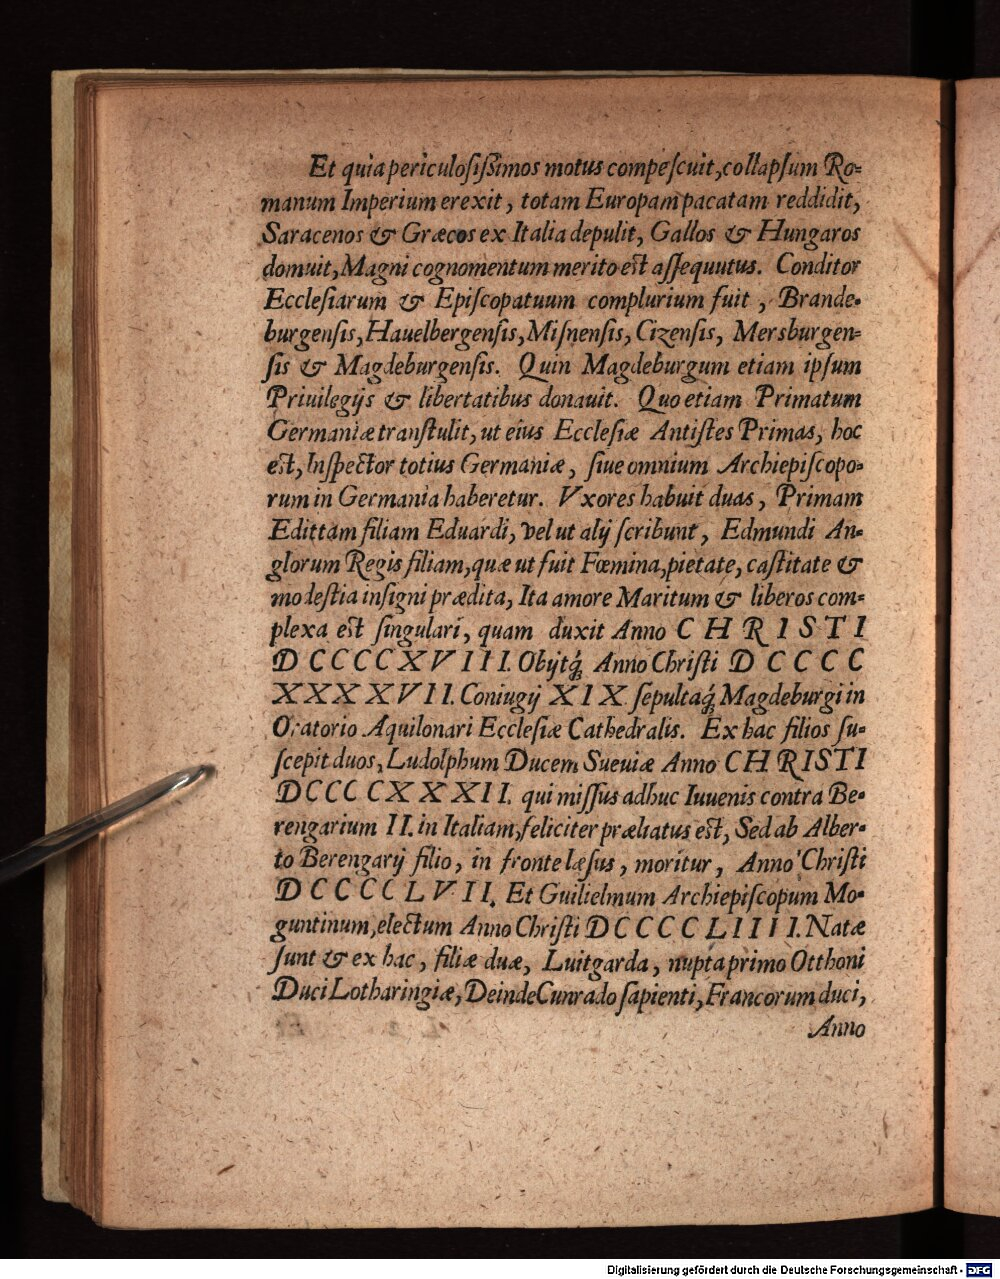 Et quia periculosißimos motus compeſcuit, collapſum Ro=
manum Imperium erexit, totam Europam pacatam reddidit,
Saracenos & Græcos ex Italia depulit, Gallos & Hungaros
domuit, Magni cognomentum merito est aſſequutus. Conditor
Eccleſiarum & Epiſcopatuum complurium fuit, Brande=
burgenſis, Hauelbergenſis, Miſnenſis, Cizenſis, Mersburgen=
ſis & Magdeburgenſis. Quin Magdeburgum etiam ipſum
Priuilegijs & libertatibus donauit. Quo etiam Primatum
Germaniæ tranſtulit, ut eius Eccleſiæ Antiſtes Primas, hoc
est, Inſpector totius Germaniæ, ſiue omnium Archiepiſcopo=
rum in Germania haberetur. Vxores habuit duas, Primam
Edittam filiam Eduardi, vel ut alij ſcribunt, Edmundi An=
glorum Regis filiam, quæ ut fuit Fœmina, pietate, caſtitate &
modeſtia inſigni prædita, Ita amore Maritum & liberos com=
plexa est ſingulari, quam duxit Anno CHRISTI
DCCCCXVIII. Obijtq́; Anno Chriſti DCCCC
XXXXVII. Coniugij XIX. ſepultaq́; Magdeburgi in
Oratorio Aquilonari Eccleſiæ Cathedralis. Ex hac filios ſu=
ſcepit duos, Ludolphum Ducem Sueuiæ Anno CHRISTI
DCCCCXXXII. qui miſſus adhuc Iuuenis contra Be=
rengarium II. in Italiam, feliciter præliatus est, Sed ab Alber=
to Berengarij filio, in fronte læſus, moritur, Anno Chriſti
DCCCCLVII. Et Guilielmum Archiepiſcopum Mo=
guntinum, electum Anno Chriſti DCCCCLIIII. Natæ
ſunt & ex hac, filiæ duæ, Luitgarda, nupta primo Otthoni
Duci Lotharingiæ, Deinde Cunrado ſapienti, Francorum duci,
Anno
Digitalisierung gefördert durch die Deutsche Forschungsgemeinschaft - DFG